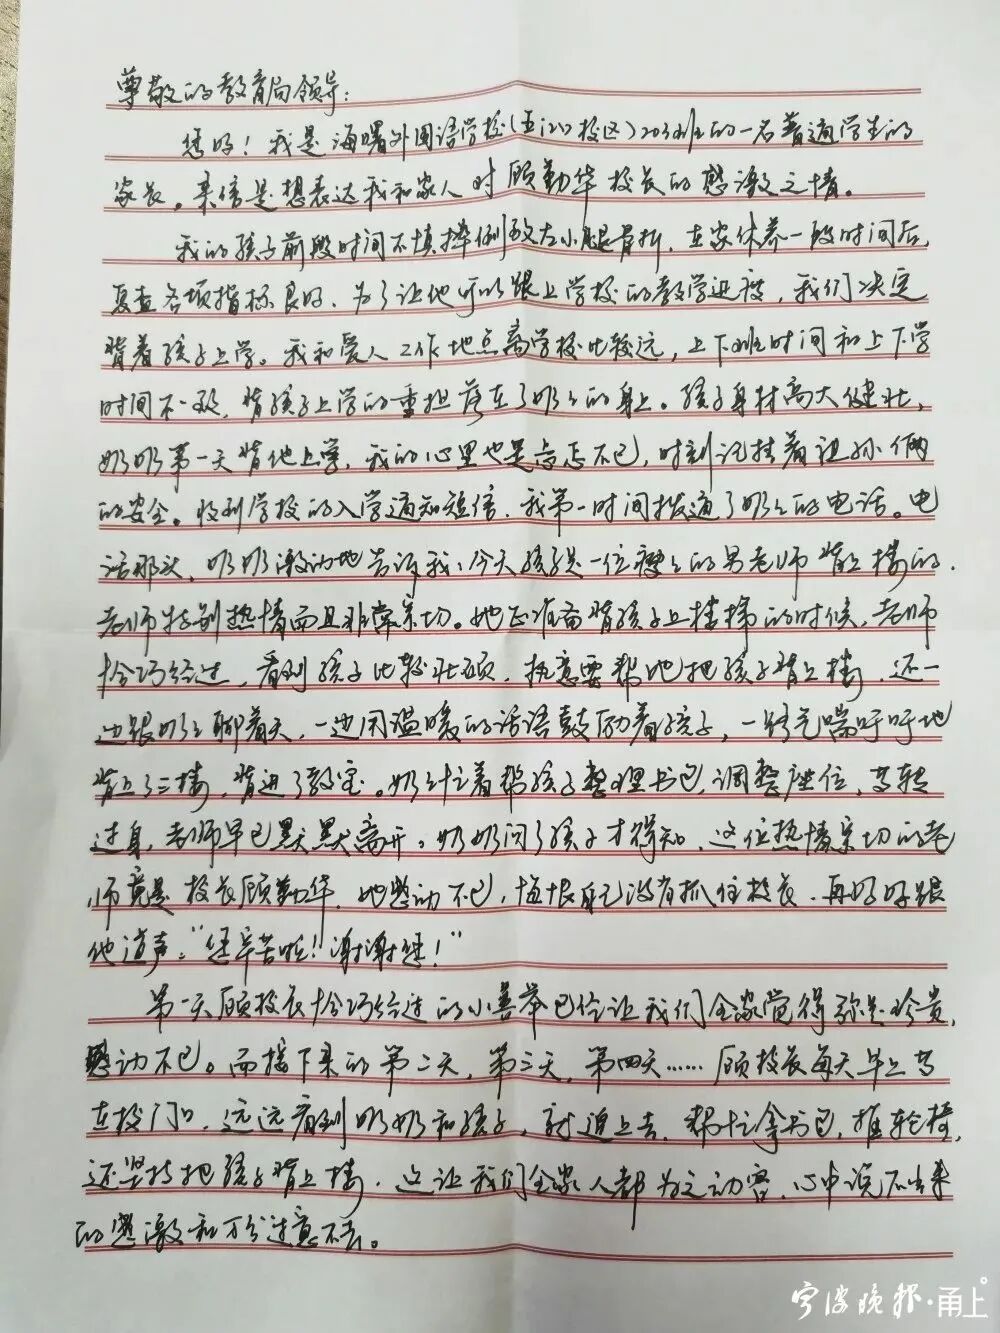 尊敬的教育局领导：
您好！我是海曙外国语学校（ 校区）203班的一名普通学生的
家长。来信是想表达我和家人对顾勤华校长的感激之情。
我的孩子前段时间不慎摔倒致左小腿骨折，在家休养一段时间后，
复查各项指标良好，为了让他可以跟上学校的教学进度，我们决定
背着孩子上学。我和爱人工作地点离学校比较远，上下班时间和上下学
时间不一致，背孩子上学的重担落在了奶奶的身上。孩子身材高大健壮，
奶奶第一天背他上学，我的心里也是忐忑不已，时刻记挂着祖孙俩
的安全。收到学校的入学通知短信，我第一时间拨通了奶奶的电话。电
话那头，奶奶激动地告诉我：今天孩子是一位瘦瘦的男老师背上楼的，
老师特别热情而且非常亲切。她正准备背孩子上楼梯的时候，老师
恰巧经过，看到孩子比较壮硕，执意要帮她把孩子背上楼，还一
边跟奶奶聊着天，一边用温暖的话语鼓励着孩子，一路气喘吁吁地
背上了三楼，背进了教室。奶奶忙着帮孩子整理书包，调整座位，等转
过身，老师早已默默离开。奶奶问了孩子才得知，这位热情亲切的老
师竟是校长顾勤华，她感动不已，悔恨自己没有抓住校长，再好好跟
他道声：“您辛苦啦！谢谢您！”
第一天顾校长恰巧经过的小善举已经让我们全家觉得弥足珍贵，
感动不已。而接下来的第二天，第三天，第四天……顾校长每天早上等
在校门口，远远看到奶奶和孩子，就迎上去，帮忙拿书包，推轮椅，
还坚持把孩子背上楼，这让我们全家人都为之动容，心中说不出来
的感激和万分过意不去。
宁波晚报·甬上